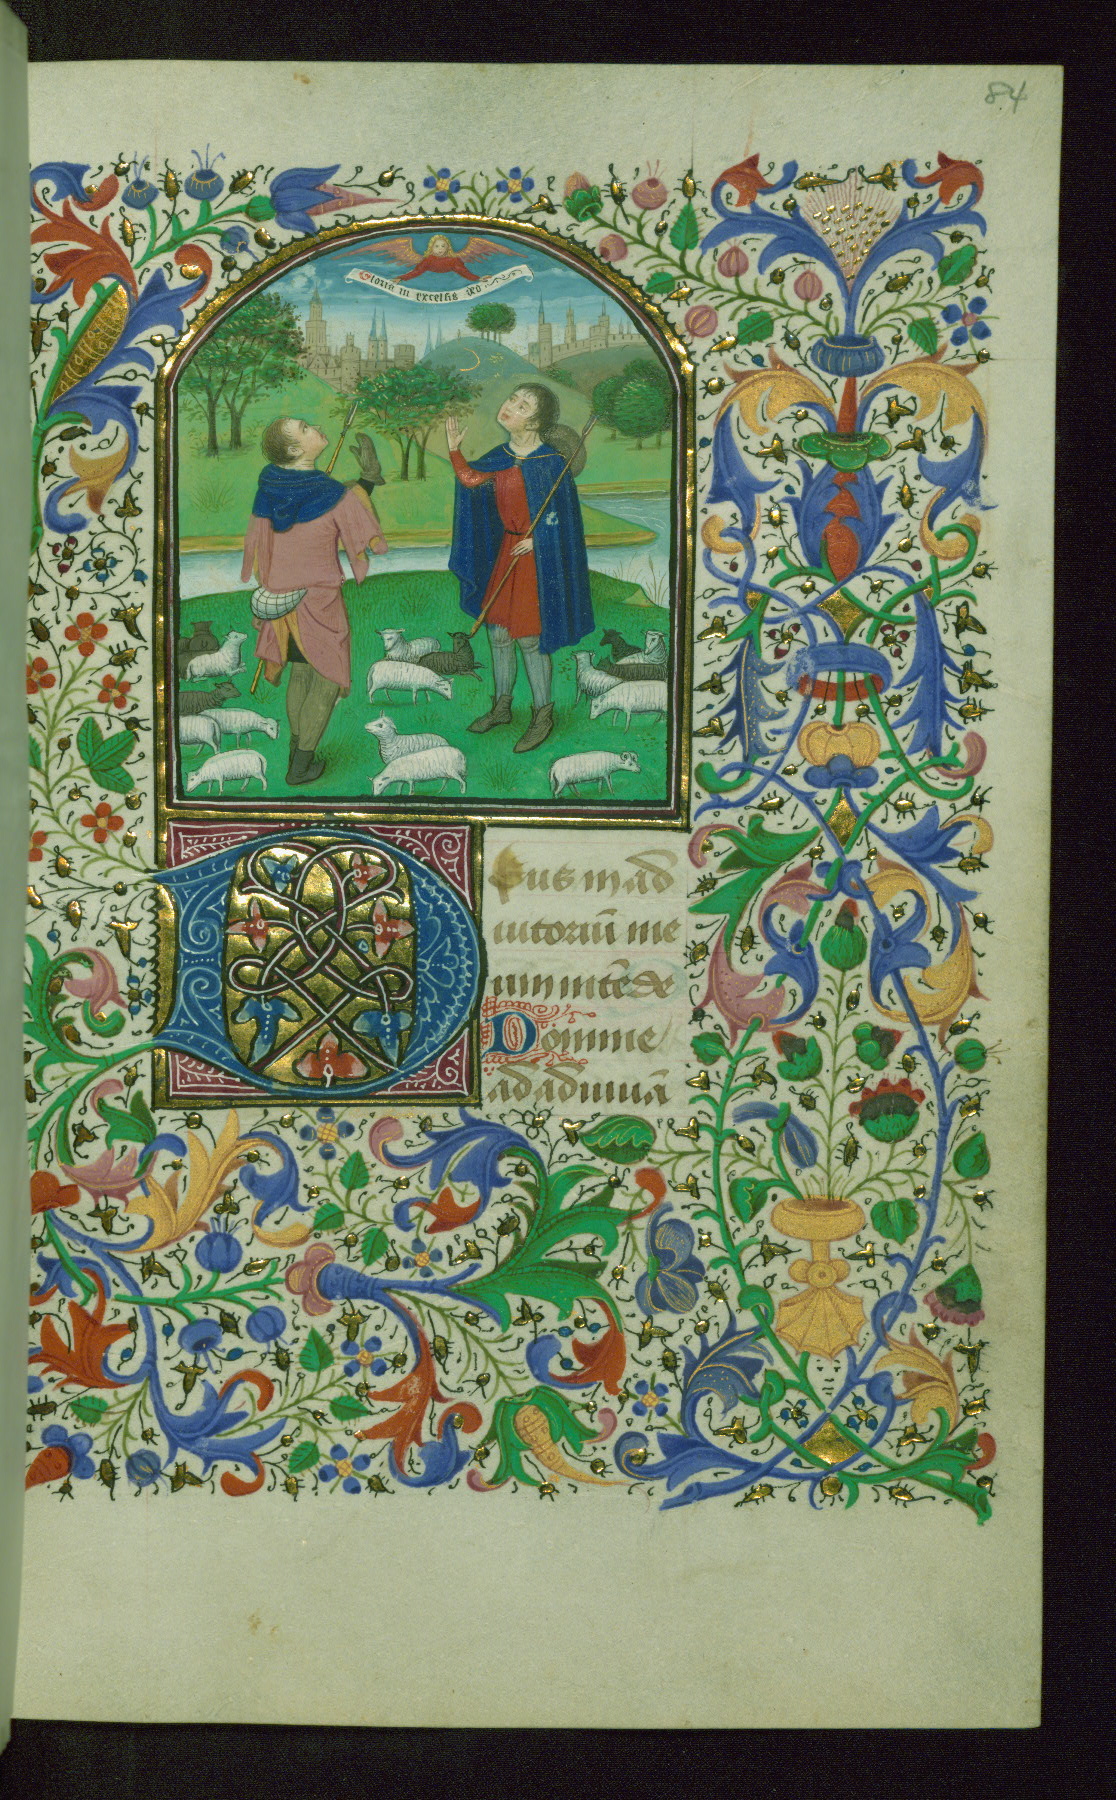 84
Gloria in excelsis deo
Deus in ad
iutoriū me
um intēde
Domine
ad adiuuā